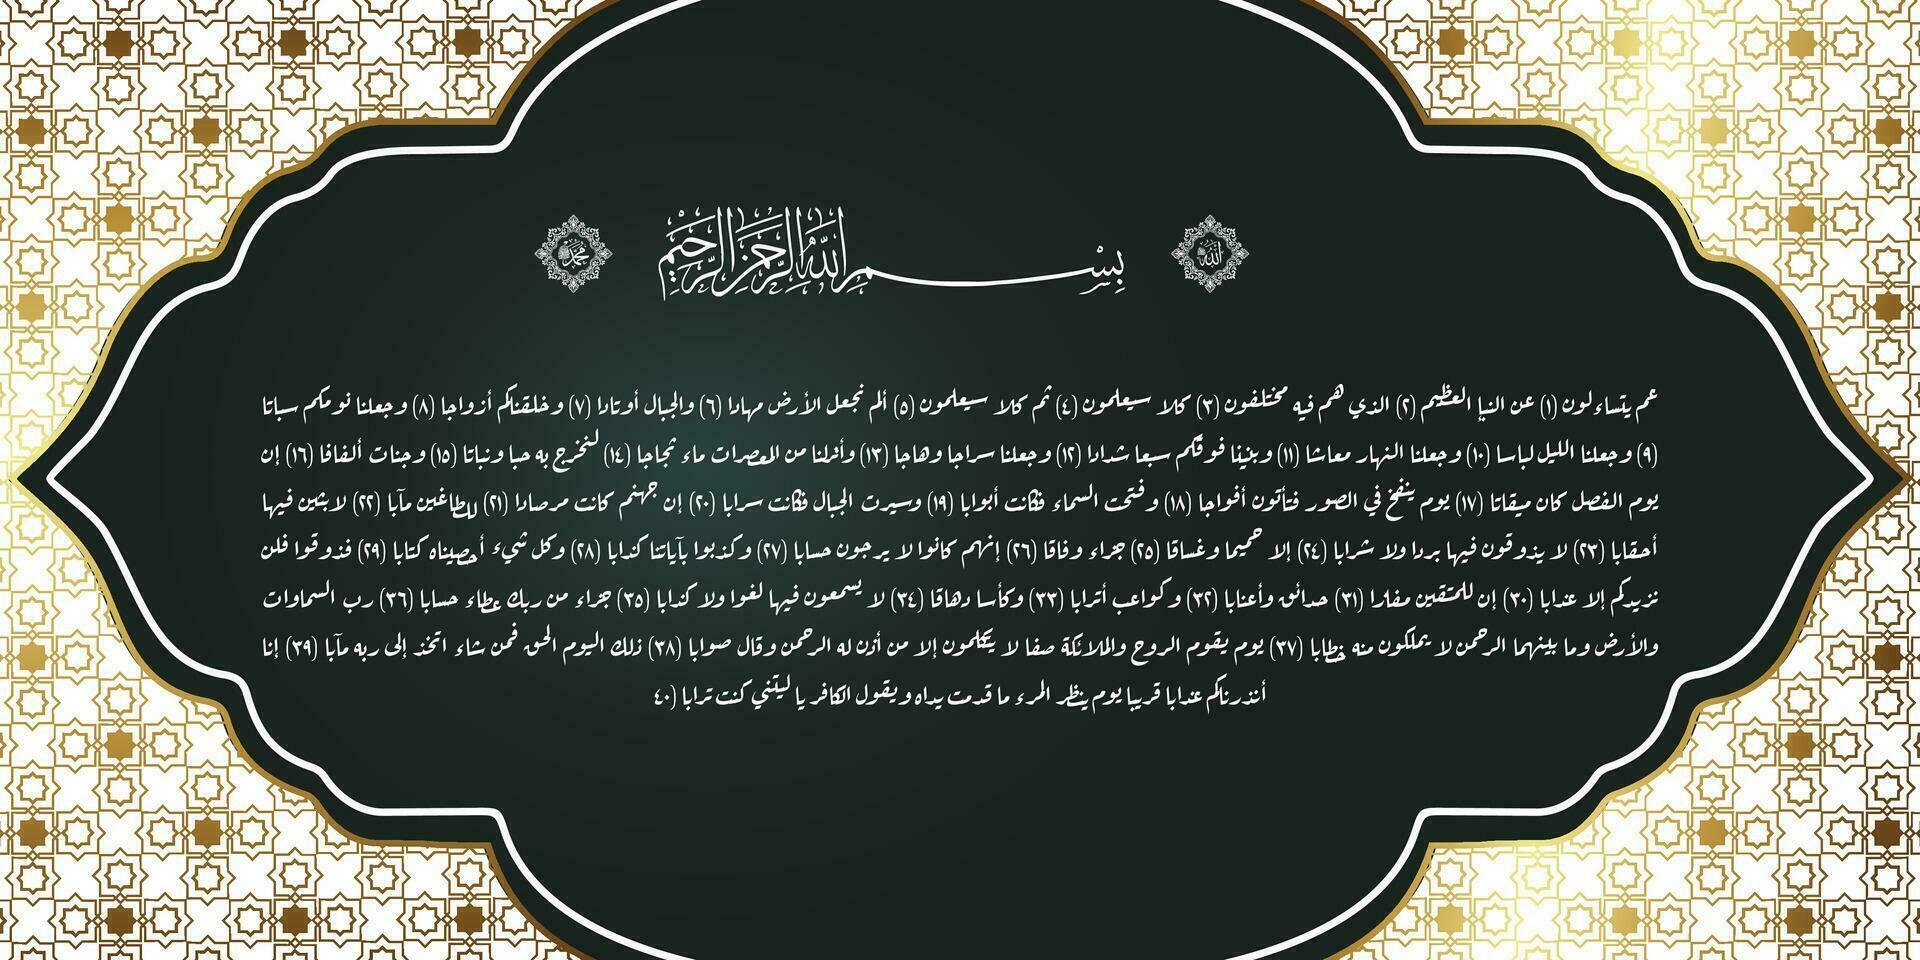 الله
بِسْمِ اللَّهِ الرَّحْمَنِ الرَّحِيمِ
محمد
عم يتساءلون (١) عن النبإ العظيم (٢) الذي هم فيه مختلفون (٣) كلا سيعلمون (٤) ثم كلا سيعلمون (٥) ألم نجعل الأرض مهادا (٦) والجبال أوتادا (٧) وخلقناكم أزواجا (٨) وجعلنا نومكم سباتا
(٩) وجعلنا الليل لباسا (١٠) وجعلنا النهار معاشا (١١) وبنينا فوقكم سبعا شدادا (١٢) وجعلنا سراجا وهاجا (١٣) وأنزلنا من المعصرات ماء ثجاجا (١٤) لنخرج به حبا ونباتا (١٥) وجنات ألفافا (١٦) إن
يوم الفصل كان ميقاتا (١٧) يوم ينفخ في الصور فتأتون أفواجا (١٨) وفتحت السماء فكانت أبوابا (١٩) وسيرت الجبال فكانت سرابا (٢٠) إن جهنم كانت مرصادا (٢١) للطاغين مآبا (٢٢) لابثين فيها
أحقابا (٢٣) لا يذوقون فيها بردا ولا شرابا (٢٤) إلا حميما وغساقا (٢٥) جزاء وفاقا (٢٦) إنهم كانوا لا يرجون حسابا (٢٧) وكذبوا بآياتنا كذابا (٢٨) وكل شيء أحصيناه كتابا (٢٩) فذوقوا فلن
نزيدكم إلا عذابا (٣٠) إن للمتقين مفازا (٣١) حدائق وأعنابا (٣٢) وكواعب أترابا (٣٣) وكأسا دهاقا (٣٤) لا يسمعون فيها لغوا ولا كذابا (٣٥) جزاء من ربك عطاء حسابا (٣٦) رب السماوات
والأرض وما بينهما الرحمن لا يملكون منه خطابا (٣٧) يوم يقوم الروح والملائكة صفا لا يتكلمون إلا من أذن له الرحمن وقال صوابا (٣٨) ذلك اليوم الحق فمن شاء اتخذ إلى ربه مآبا (٣٩) إنا
أنذرناكم عذابا قريبا يوم ينظر المرء ما قدمت يداه ويقول الكافر يا ليتني كنت ترابا (٤٠